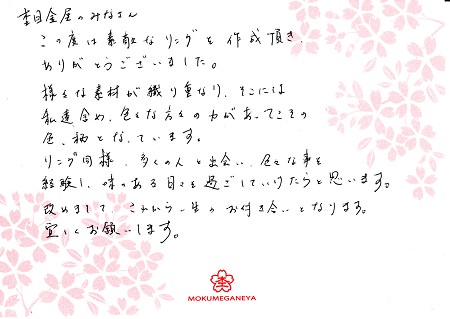 杢目金屋のみなさん
この度は素敵なリングを作成頂き
ありがとうございました。
様々な素材が織り重なり、そこには
私達含め、色々な方々の力があってこその
色、柄となっています。
リング同様、多くの人と出会い、色々な事を
経験し、味のある日々を過ごしていけたらと思います。
改めまして、これから一生のお付き合いとなります。
宜しくお願いします。
MOKUMEGANEYA